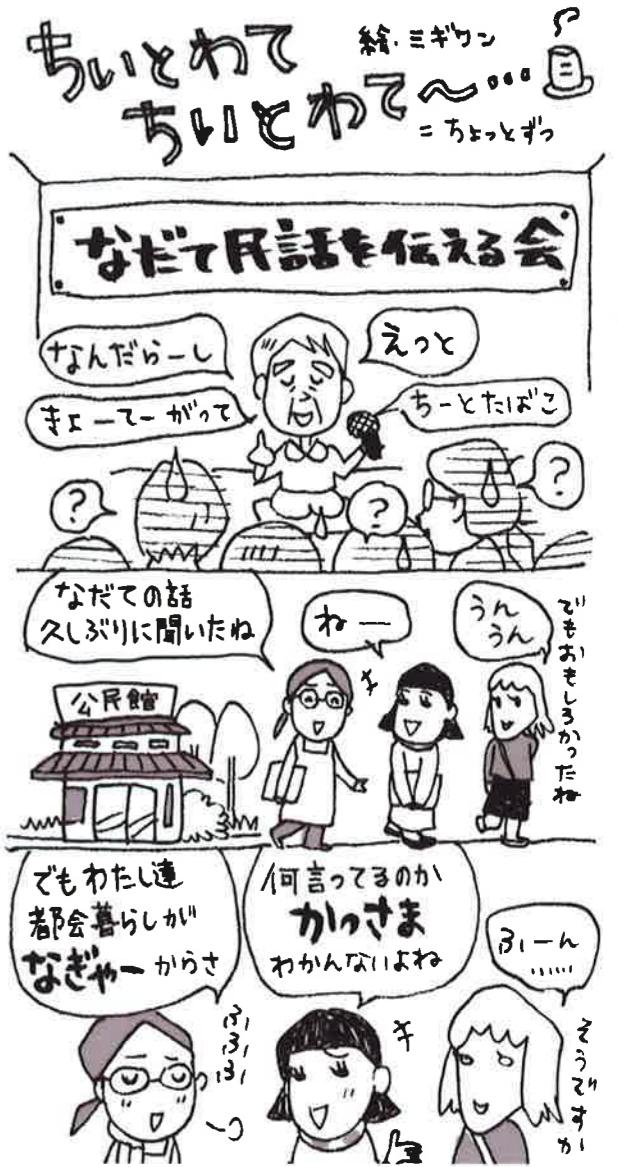 ちぃとわて
ちいとわて〜…
絵・ミギワン
=ちょっとずつ
なだて民話を伝える会
えっと
なんだらーし
ちーとたばこ
きょーてーがって
?
?
?
なだての話
久しぶりに聞いたね
ねー
うん
うん
でもおもしろかったね
公民館
でもわたし達
都会暮らしが
なぎゃーからさ
何言ってるのか
かっさま
わかんないよね
ふーん
……
ふふふ
そうですか